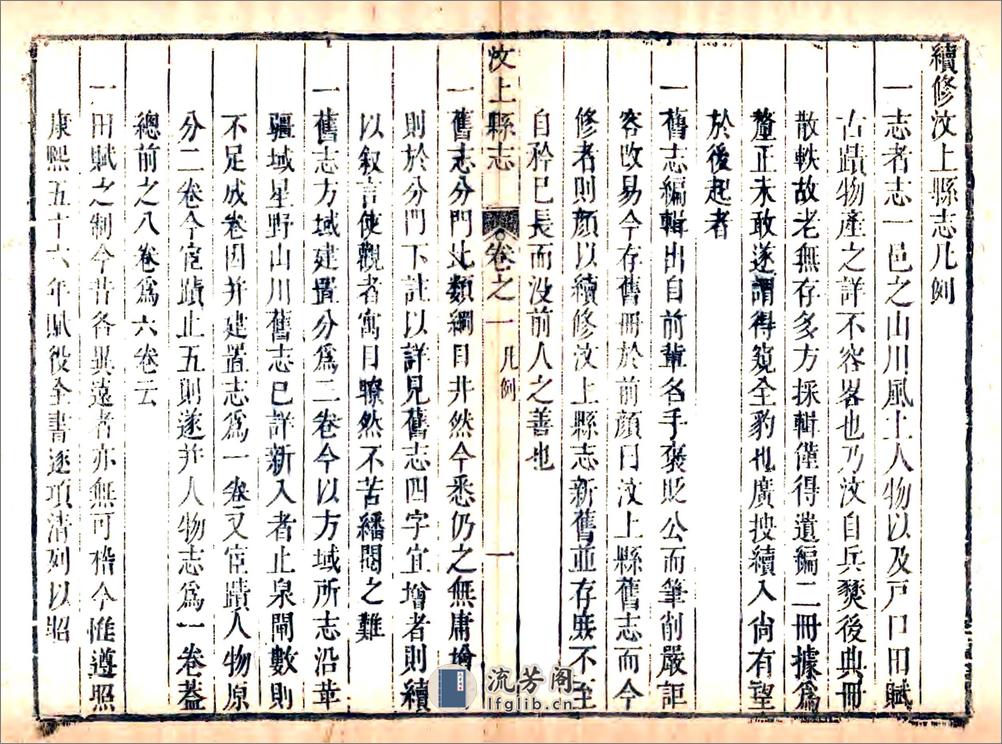 續修汶上縣志凡例
一志者志一邑之山川風土人物以及戸口田賦
古蹟物產之詳不容畧也乃汶自兵燹後典冊
散軼故老無存多方採輯僅得遺編二冊據為
釐正未敢遂謂得窺全豹也廣搜續入尚有望
於後起者
一舊志編輯出自前輩名手褒貶公而筆削嚴詎
容改易今存舊冊於前顔曰汶上縣舊志而今
修者則顔以續修汶上縣志新舊並存庶不至
自矜已長而沒前人之善也
汶上縣志 卷之一 凡例 一
一舊志分門比類綱目井然今悉仍之無庸增
則於分門下註以詳見舊志四字宜增者則續
以叙言使觀者寓目瞭然不苦繙閱之難
一舊志方域建置分為二卷今以方域所志沿革
疆域星野山川舊志已詳新入者止泉閘數則
不足成卷因并建置志為一卷又宦蹟人物原
分二卷今宦蹟止五則遂并人物志為一卷葢
總前之八卷為六卷云
一田賦之制今昔各異遠者亦無可稽今惟遵照
康熙五十六年賦役全書逐項清列以昭
流芳阁
lfglib.cn